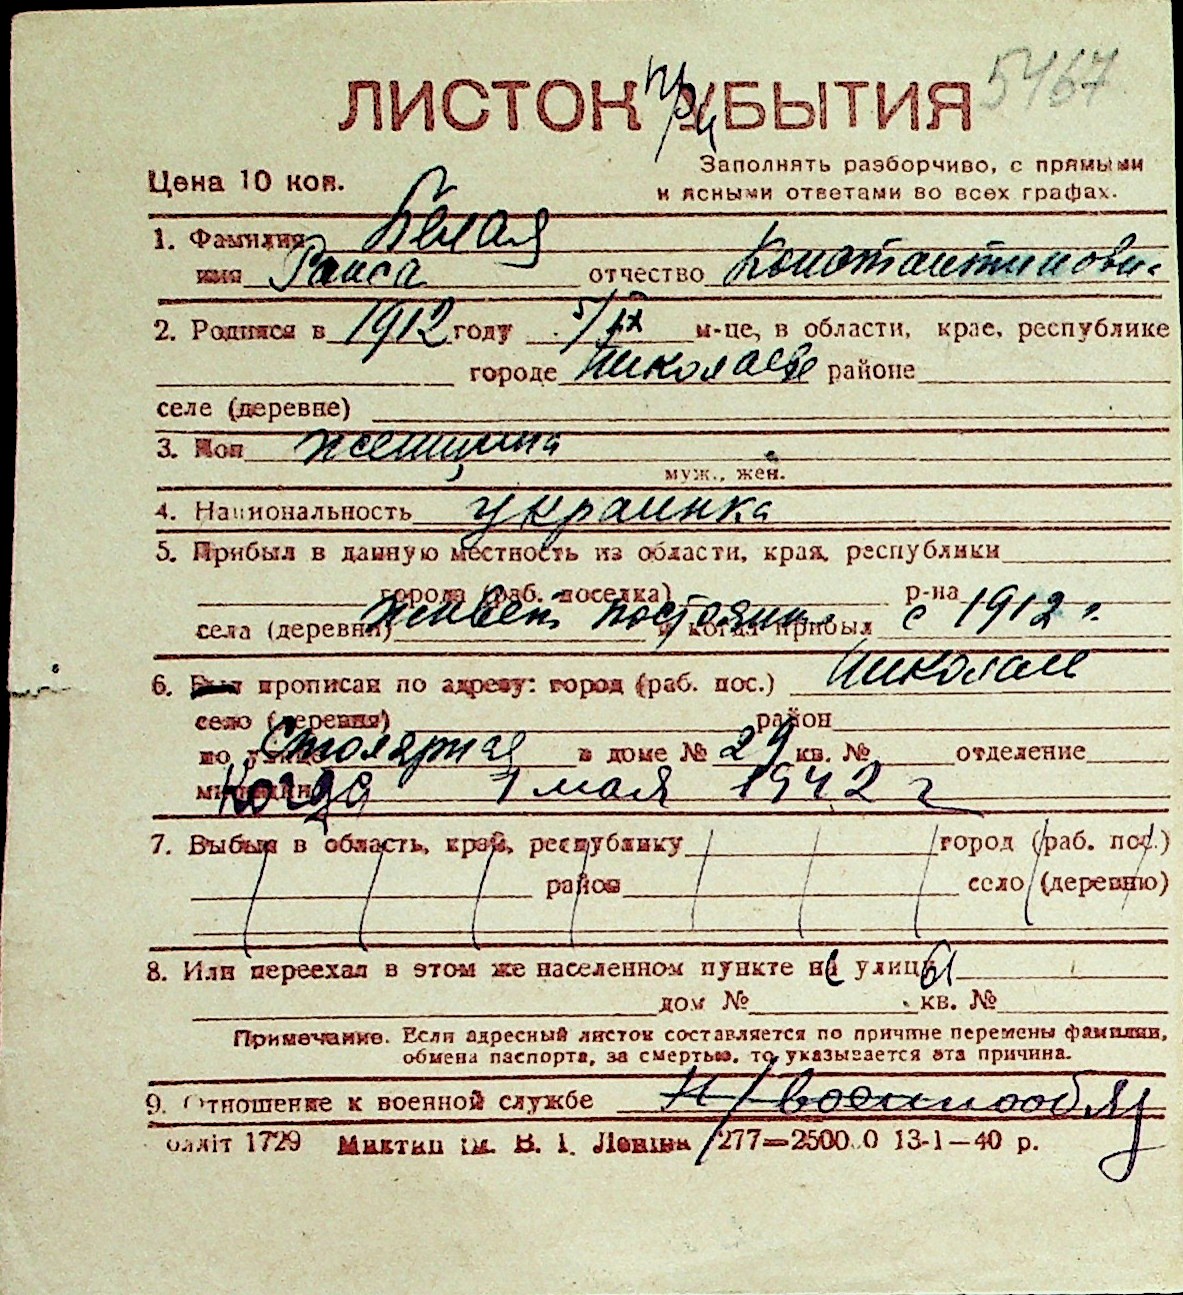 ЛИСТОК УБЫТИЯ 5467
Цена 10 коп.
Заполнять разборчиво, с прямыми
и ясными ответами во всех графах.
1. Фамилия Белая
имя Раиса отчество Константиновн.
2. Родился в 1912 году 5/IX м-це, в области, крае, республике
городе Николаеве районе
селе (деревне)
3. Пол женщина
муж., жен.
4. Национальность украинка
5. Прибыл в данную местность из области, края, республики
города (раб. поселка) р-на
села (деревни) живет постоянн. и когда прибыл с 1912 г.
6. Был прописан по адресу: город (раб. пос.) Николаев
село (деревня) район
по улице Столярная в доме № 29 кв. № отделение
милиции Когда 1 мая 1942 г
7. Выбыл в область, край, республику город (раб. пос.)
район село (деревню)
8. Или переехал в этом же населенном пункте на улицу
дом № кв. №
Примечание. Если адресный листок составляется по причине перемены фамилии,
обмена паспорта, за смертью, то указывается эта причина.
9. Отношение к военной службе н/военнообяз
облліт 1729 Миктип ім. В. І. Леніна 277—2500 0 13-1—40 р.